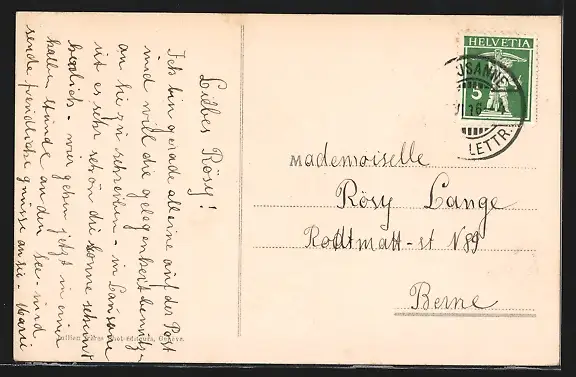 Liebes Rösy!
Ich bin gerade alleine auf der Post
und will die gelegenheit benutzen
an Sie zu schreiben - in Lausanne
ist es sehr schön die Sonne scheint
herrlich - wir gehen jetzt in einer
halben Stunde an den See - und
sende freundliche grüsse an sie - Marie
HELVETIA
5
LETTR.
Mademoiselle
Rösy Lange
Rodtmatt-st N89
Berne
Jullien frères phot-éditeurs, Genève.